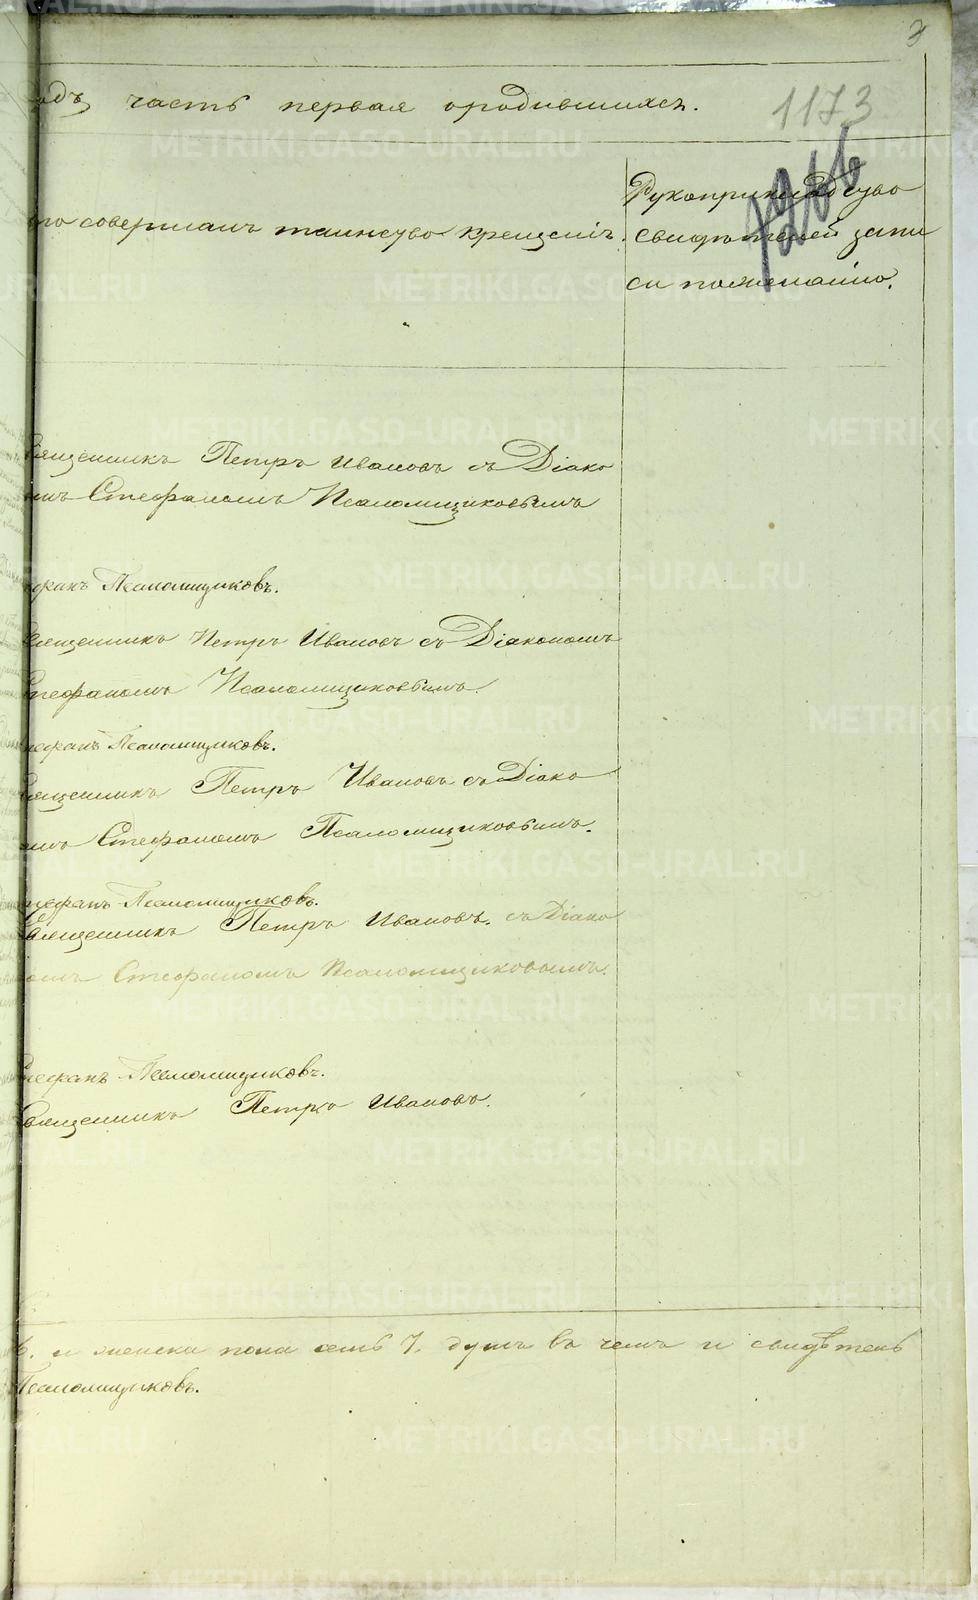 3
одъ часть первая ородившихся.
1173
1266
Рукоприкладство
свидѣтелей запи
си пожеланію.
то совершалъ таинсуво крещенія.
вященникъ Петръ Ивановъ съ Діако
омъ Стефаномъ Псаломщиковымъ
ефанъ Псаломщиковъ.
Священникъ Петръ Ивановъ съ Діакономъ
Стефаномъ Псаломщиковымъ.
тефанъ Псаломщиковъ.
Священникъ Петръ Ивановъ съ Діако
омъ Стефаномъ Псаломщиковымъ.
тефанъ Псаломщиковъ.
Священникъ Петръ Ивановъ. съ Діако
номъ Стефаномъ Псаломщиковымъ.
Стефанъ Псаломщиковъ.
Священникъ Петръ Ивановъ.
6. и женска пола семь 7. душъ въ чемъ и свидѣтель
Псаломщиковъ.
METRIKI.GASO-URAL.RU